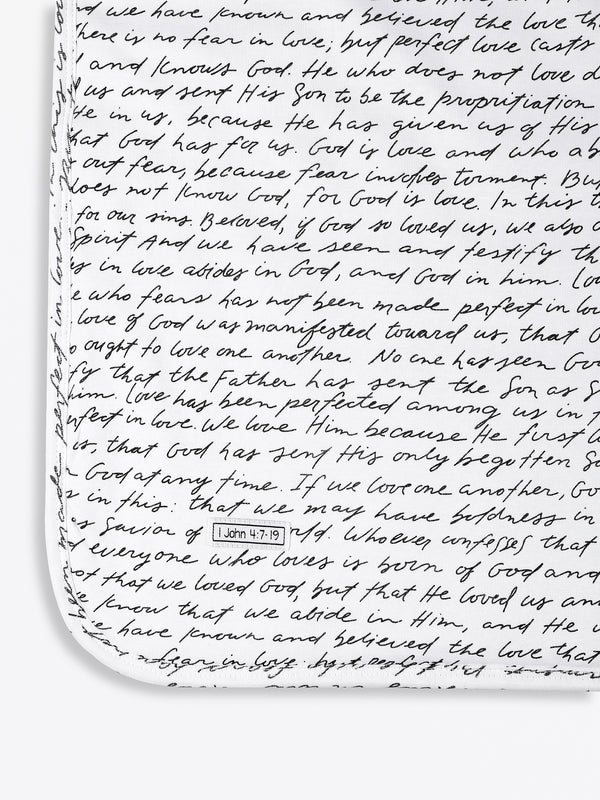 we have known and believed the love
here is no fear in love; but perfect love casts
and knows God. He who does not love
us and sent His Son to be the propritiation
He in us, because He has given us of His
that God has for us. God is love and who
out fear, because fear involves torment. But
does not know God, for God is love. In this
for our sins. Beloved, if God so loved us, we also
Spirit And we have seen and testify
in love abides in God, and God in him.
who fears has not been made perfect in
love of God was manifested toward us, that
ought to love one another. No one has seen God
that the Father has sent the Son as
him. Love has been perfected among us in
perfect in love. We love Him because He first
us, that God has sent His only begotten
God at any time. If we love one another,
in this: that we may have boldness in
Savior of
1 John 4:7-19
rld. Whoever confesses that
everyone who loves is born of God and
that we loved God, but that He loved us and
know that we abide in Him, and He
have known and believed the love that
fear in love
been made perfect in love